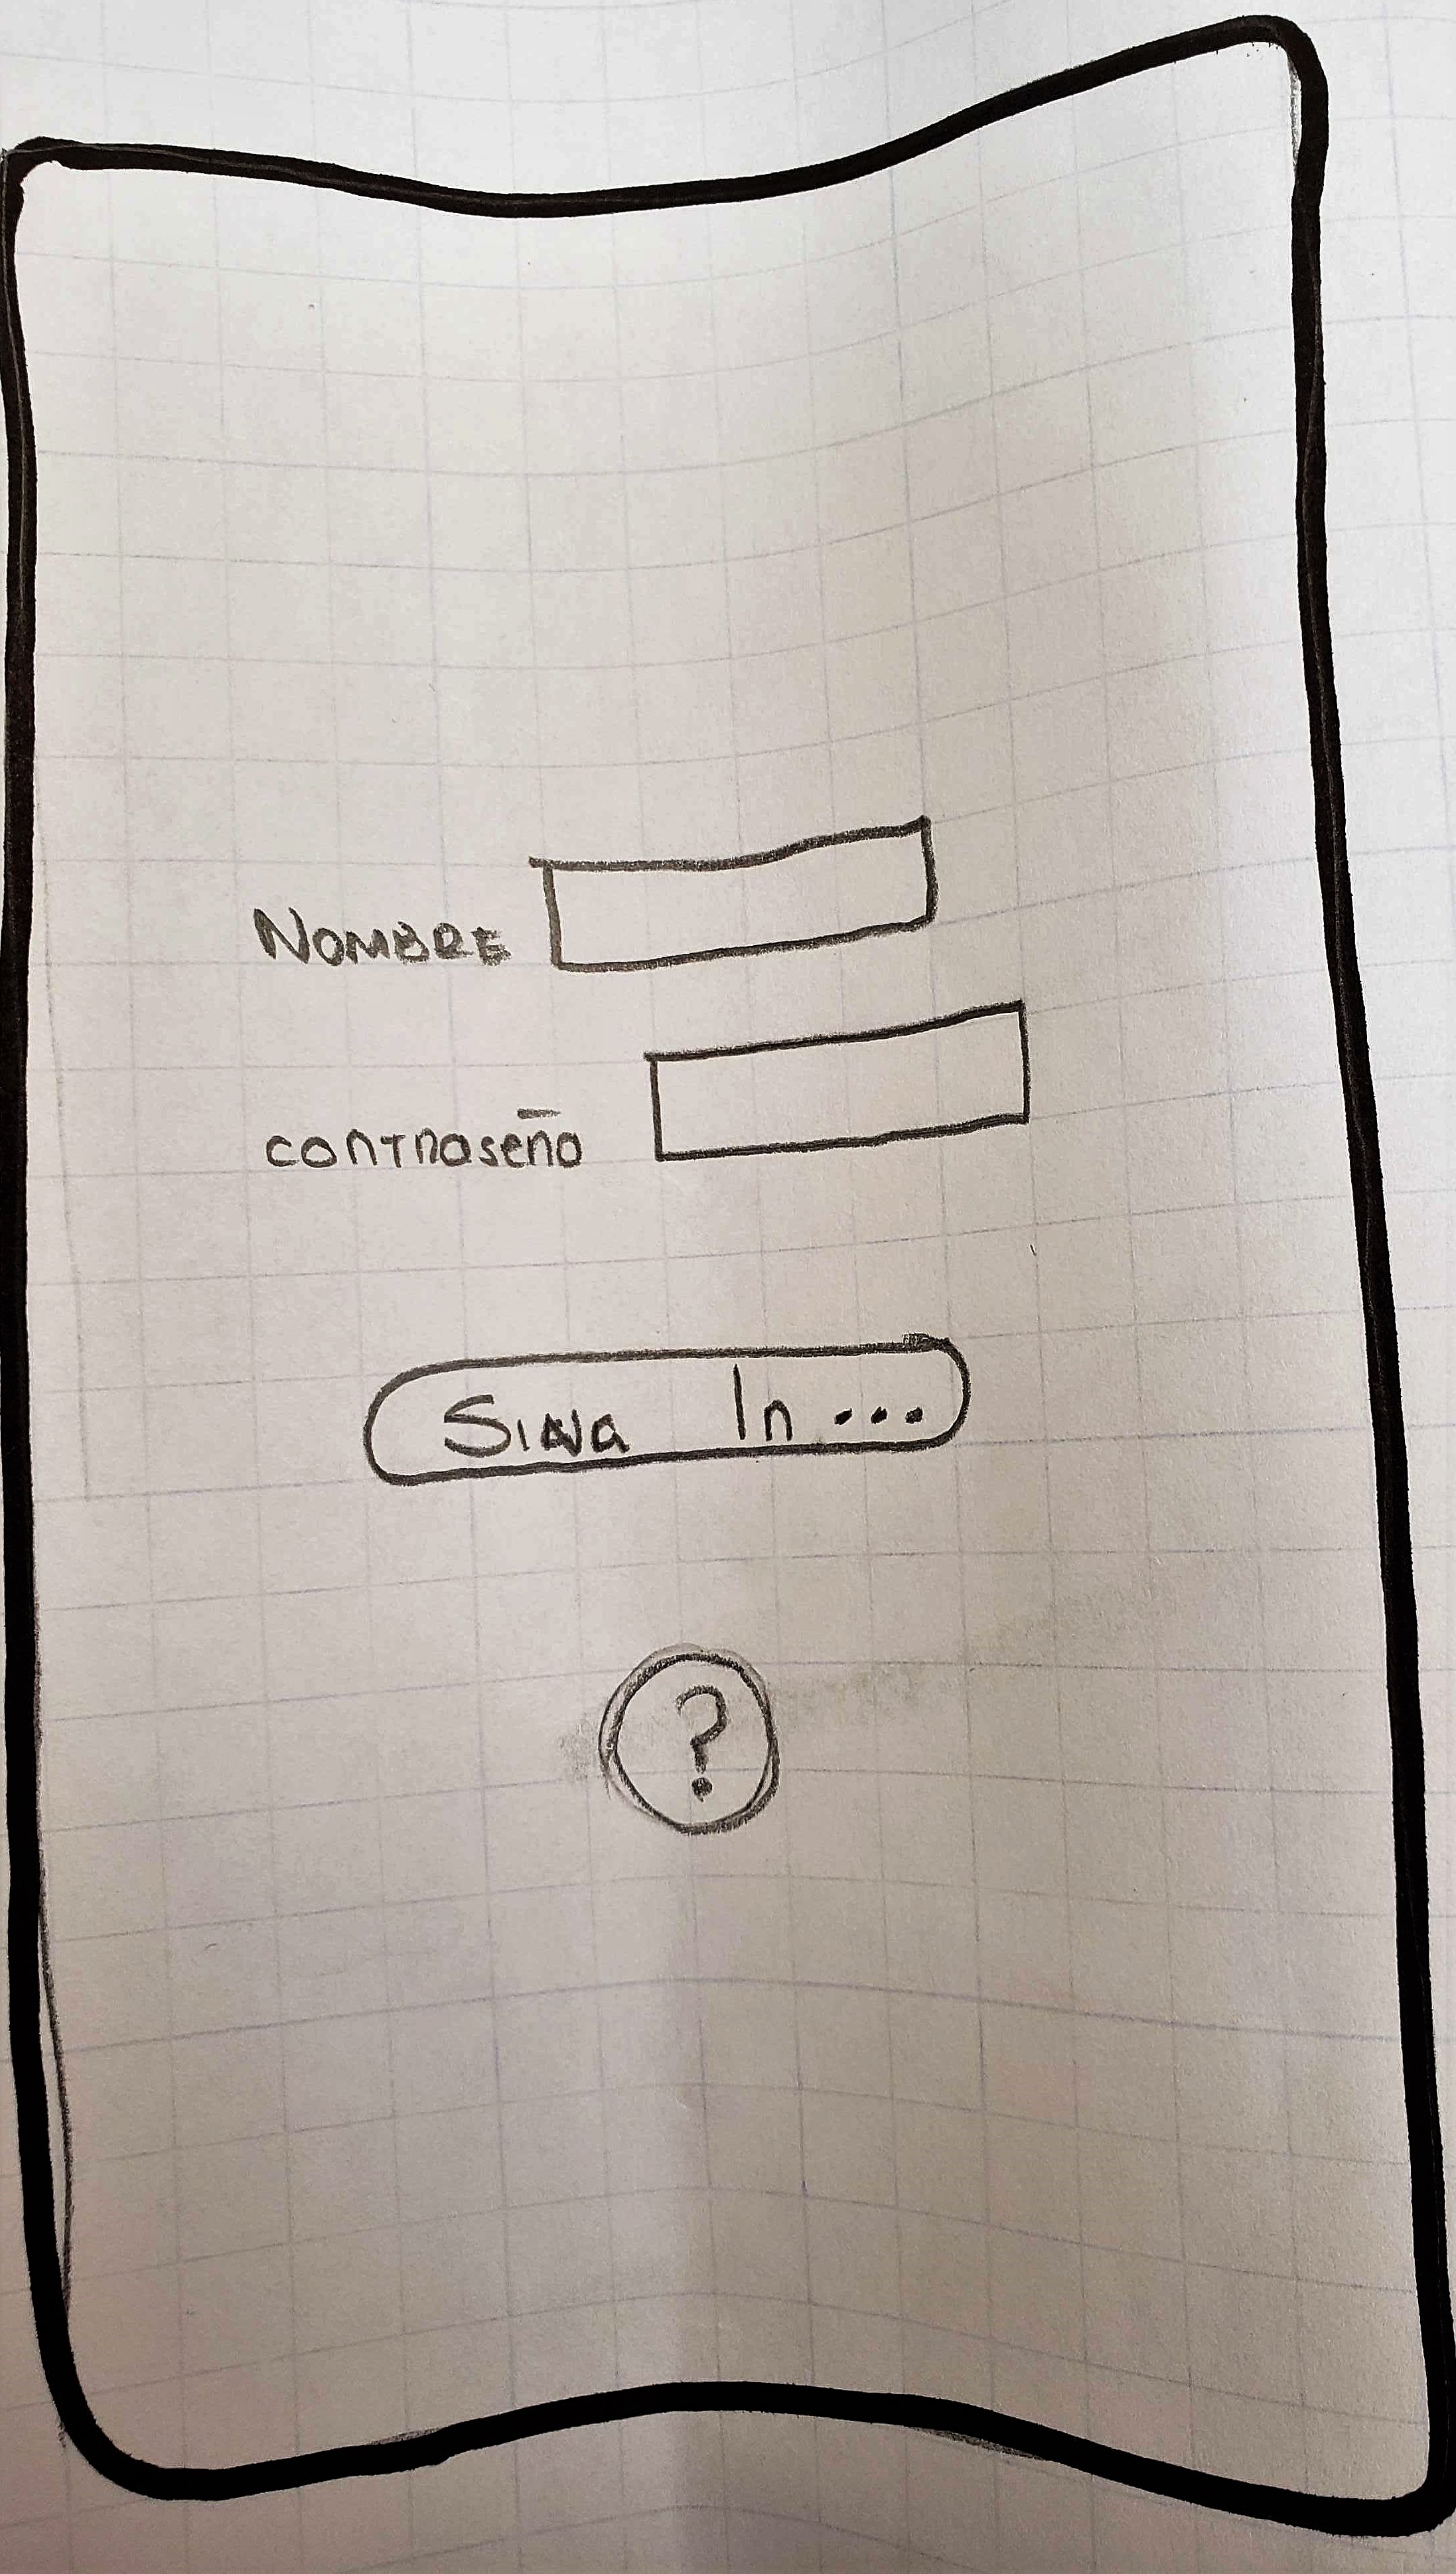 NOMBRE
contraseña
Sing In...
?